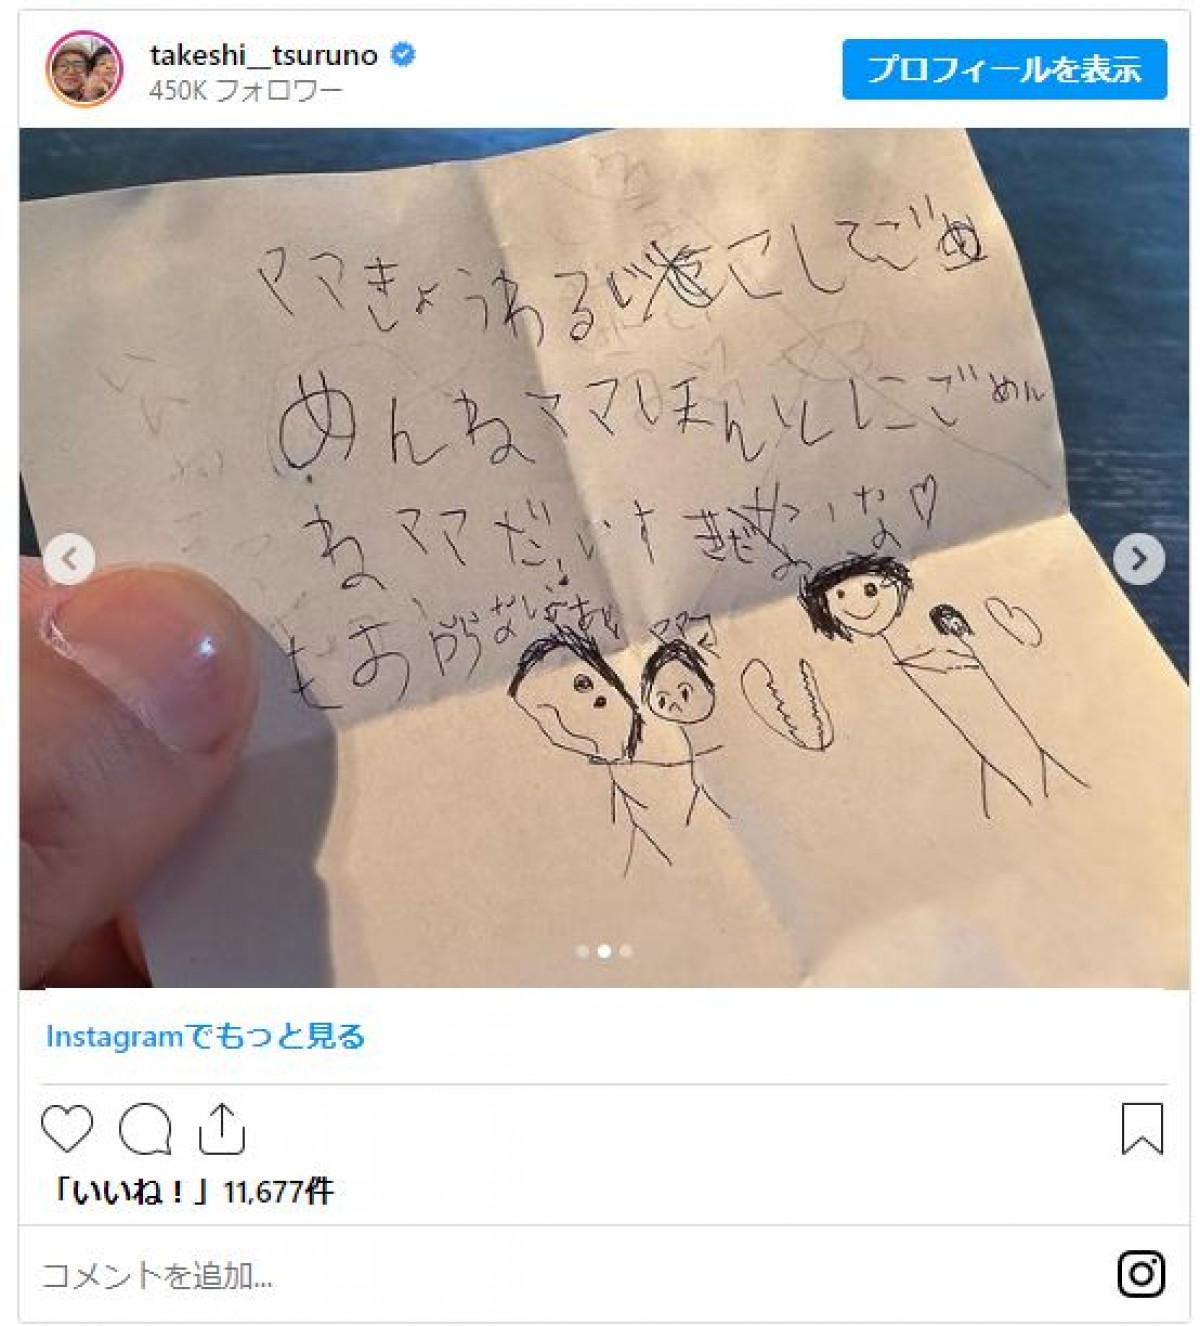 takeshi__tsuruno
450K フォロワー
プロフィールを表示
ママきょうわるいこしてごめ
めんねママほんとしにごめん
ねママだいすきだよ
もおやらないよ
ママ
Instagramでもっと見る
「いいね！」11,677件
コメントを追加...